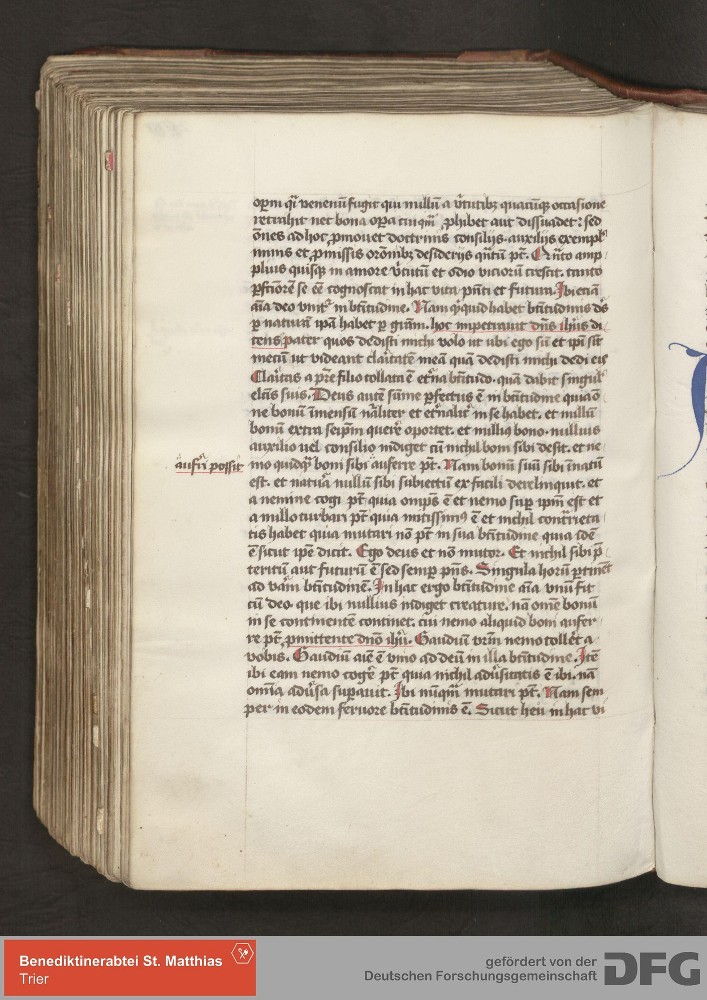 oꝑm qͥ venenū fugit qui nullū a v̓tutibꝫ quacūqꝫ occasione
retrahit nec bona oꝑa cuiqͣm ꝓhibet aut dissuadet: sed
oēs ad hoc ꝓmouet doctrinis consilijs auxilijs exempl'
minis et ꝓmissis orōnibꝫ desiderijs qͣntū pt̄. Qͣnto amp
plius quisqꝫ in amore v̓tutū et odio vicioꝝ crescit. tanto
ꝑfectiorē se eē cognoscat in hac vita pn̄ti et futura. Ibi eciā
aīa deo vnit᷑ in bt̄itudine. Nam qͥcquid habet bt̄itudinis dꝰs
ꝑ naturā ipā habet ꝑ grām. hoc impetrauit dn̄s ih̄us di
cens pater quos dedisti michi volo ut ubi ego sū et ip̄i sīt
mecū ut videant claͥtatē meā quā dedisti michi dedi eis
Claͥtas a pr̄e filio collata ē et̓na bt̄itudo. quā dabit singul'
elc̄is suis. Deus autē sūme ꝑfectus ē in bt̄itudine quia o
ne bonū īmensū nāliter et et̓nalit᷑ in se habet. et nullū
bonū extra seip̄m querē oportet. et nullius bono. nullius
auxilio uel consilio indiget cū nichil boni sibi desit. et ne
mo quidqͣ boni sibi auferre pt̄. Nam bonū suū sibi īnatū
est. et natuͣ nullū sibi subiectū ex facili derelinquit. et
a nemine cogi pt̄ quia omp̄s ē et nemo suꝑ ip̄m est et
a nullo turbari pt̄ quia mitissimꝰ ē et nichil contͣrieta
tis habet quia mutari nō pt̄ in sua bt̄itudine quia idē
ē sicut ip̄e dicit. Ego deus et nō mutor. Et nichil sibi p̄
teritū aut futurū ē sed semꝑ pn̄s. Singula horū ꝑtinēt
ad vaͣm bt̄itudinē. In hac ergo bt̄itudine aīa vnū fit
cū deo. que ibi nullius indiget creature. nā om̄e bonū
in se continentē continet. cui nemo aliquid boni aufer
re pt̄ ꝓmittente dn̄o ih̄u. Gaudiū vr̄m nemo tollet a
vobis. Gaudiū aīe ē vnio ad deū in illa bt̄itudine. Itē
ibi eam nemo cog̓e pt̄ quia nichil adu̓sitatis ē ibi. nā
om̄ia adu̓sa suꝑauit. Ibi nūqͣm mutari pt̄. Nam sem
per in eodem feruore bt̄itudinis ē. Sicut heu in hac vi
auferri possit
Benediktinerabtei St. Matthias
Trier
gefördert von der
Deutschen Forschungsgemeinschaft
DFG